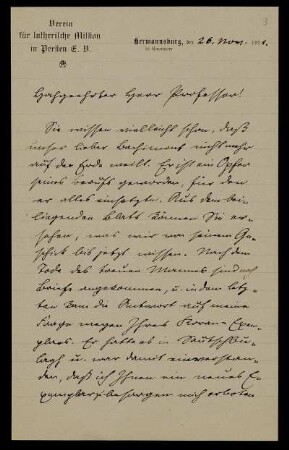 Verein
für lutherische Mission
in Persien E. V.
3
Hermannsburg, den 26. Nov. 1921.
in Hannover
Hochgeehrter Herr Professor!
Sie wissen vielleicht schon, daß
unser lieber Bachimont nicht mehr
auf der Erde weilt. Er ist ein Opfer
seines Berufs geworden, für den
er alles einsetzte. Aus dem bei-
liegenden Blatt können Sie er-
sehen, was wir von seinem Ge-
schick bis jetzt wissen. Nach dem
Tode des treuen Mannes sind noch
Briefe angekommen, u. in dem letz-
ten kam die Antwort auf meine
Frage wegen Ihres Koran-Exem-
plars. Er hatte es in Sautschbu-
lagh u. war damit einverstan-
den, daß ich Ihnen ein neues E-
xemplar z. besorgen mich erboten